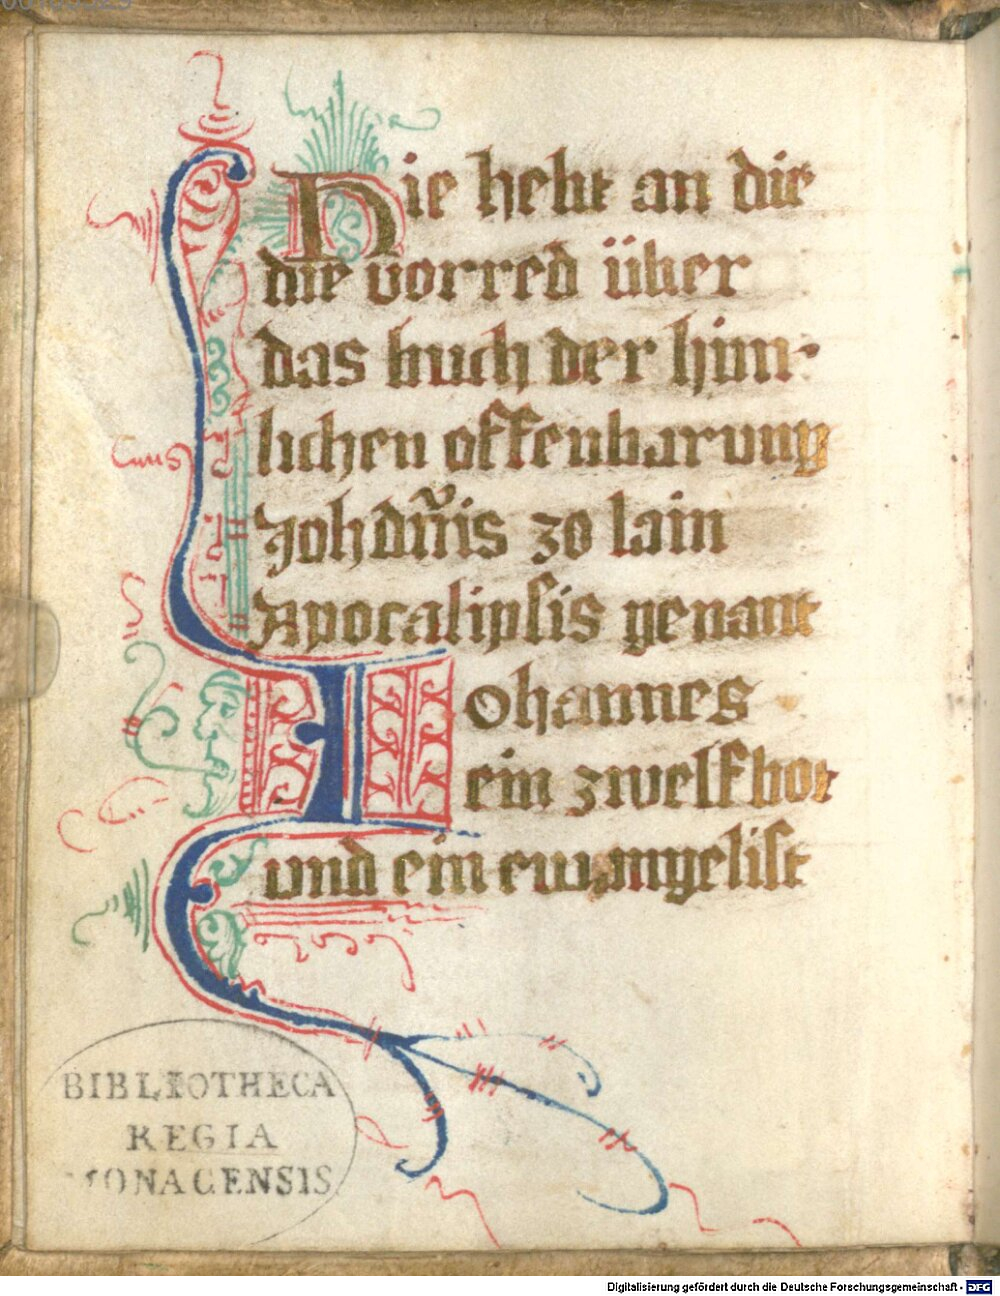 Hie hebt an die
die vorred über
das buch der him-
lichen offenbarung
Johanīs zo latin
Apocalipsis genant
Johannes
ein zwelfbot
und ein ewangelist
BIBLIOTHECA
REGIA
MONACENSIS
Digitalisierung gefördert durch die Deutsche Forschungsgemeinschaft - DFG